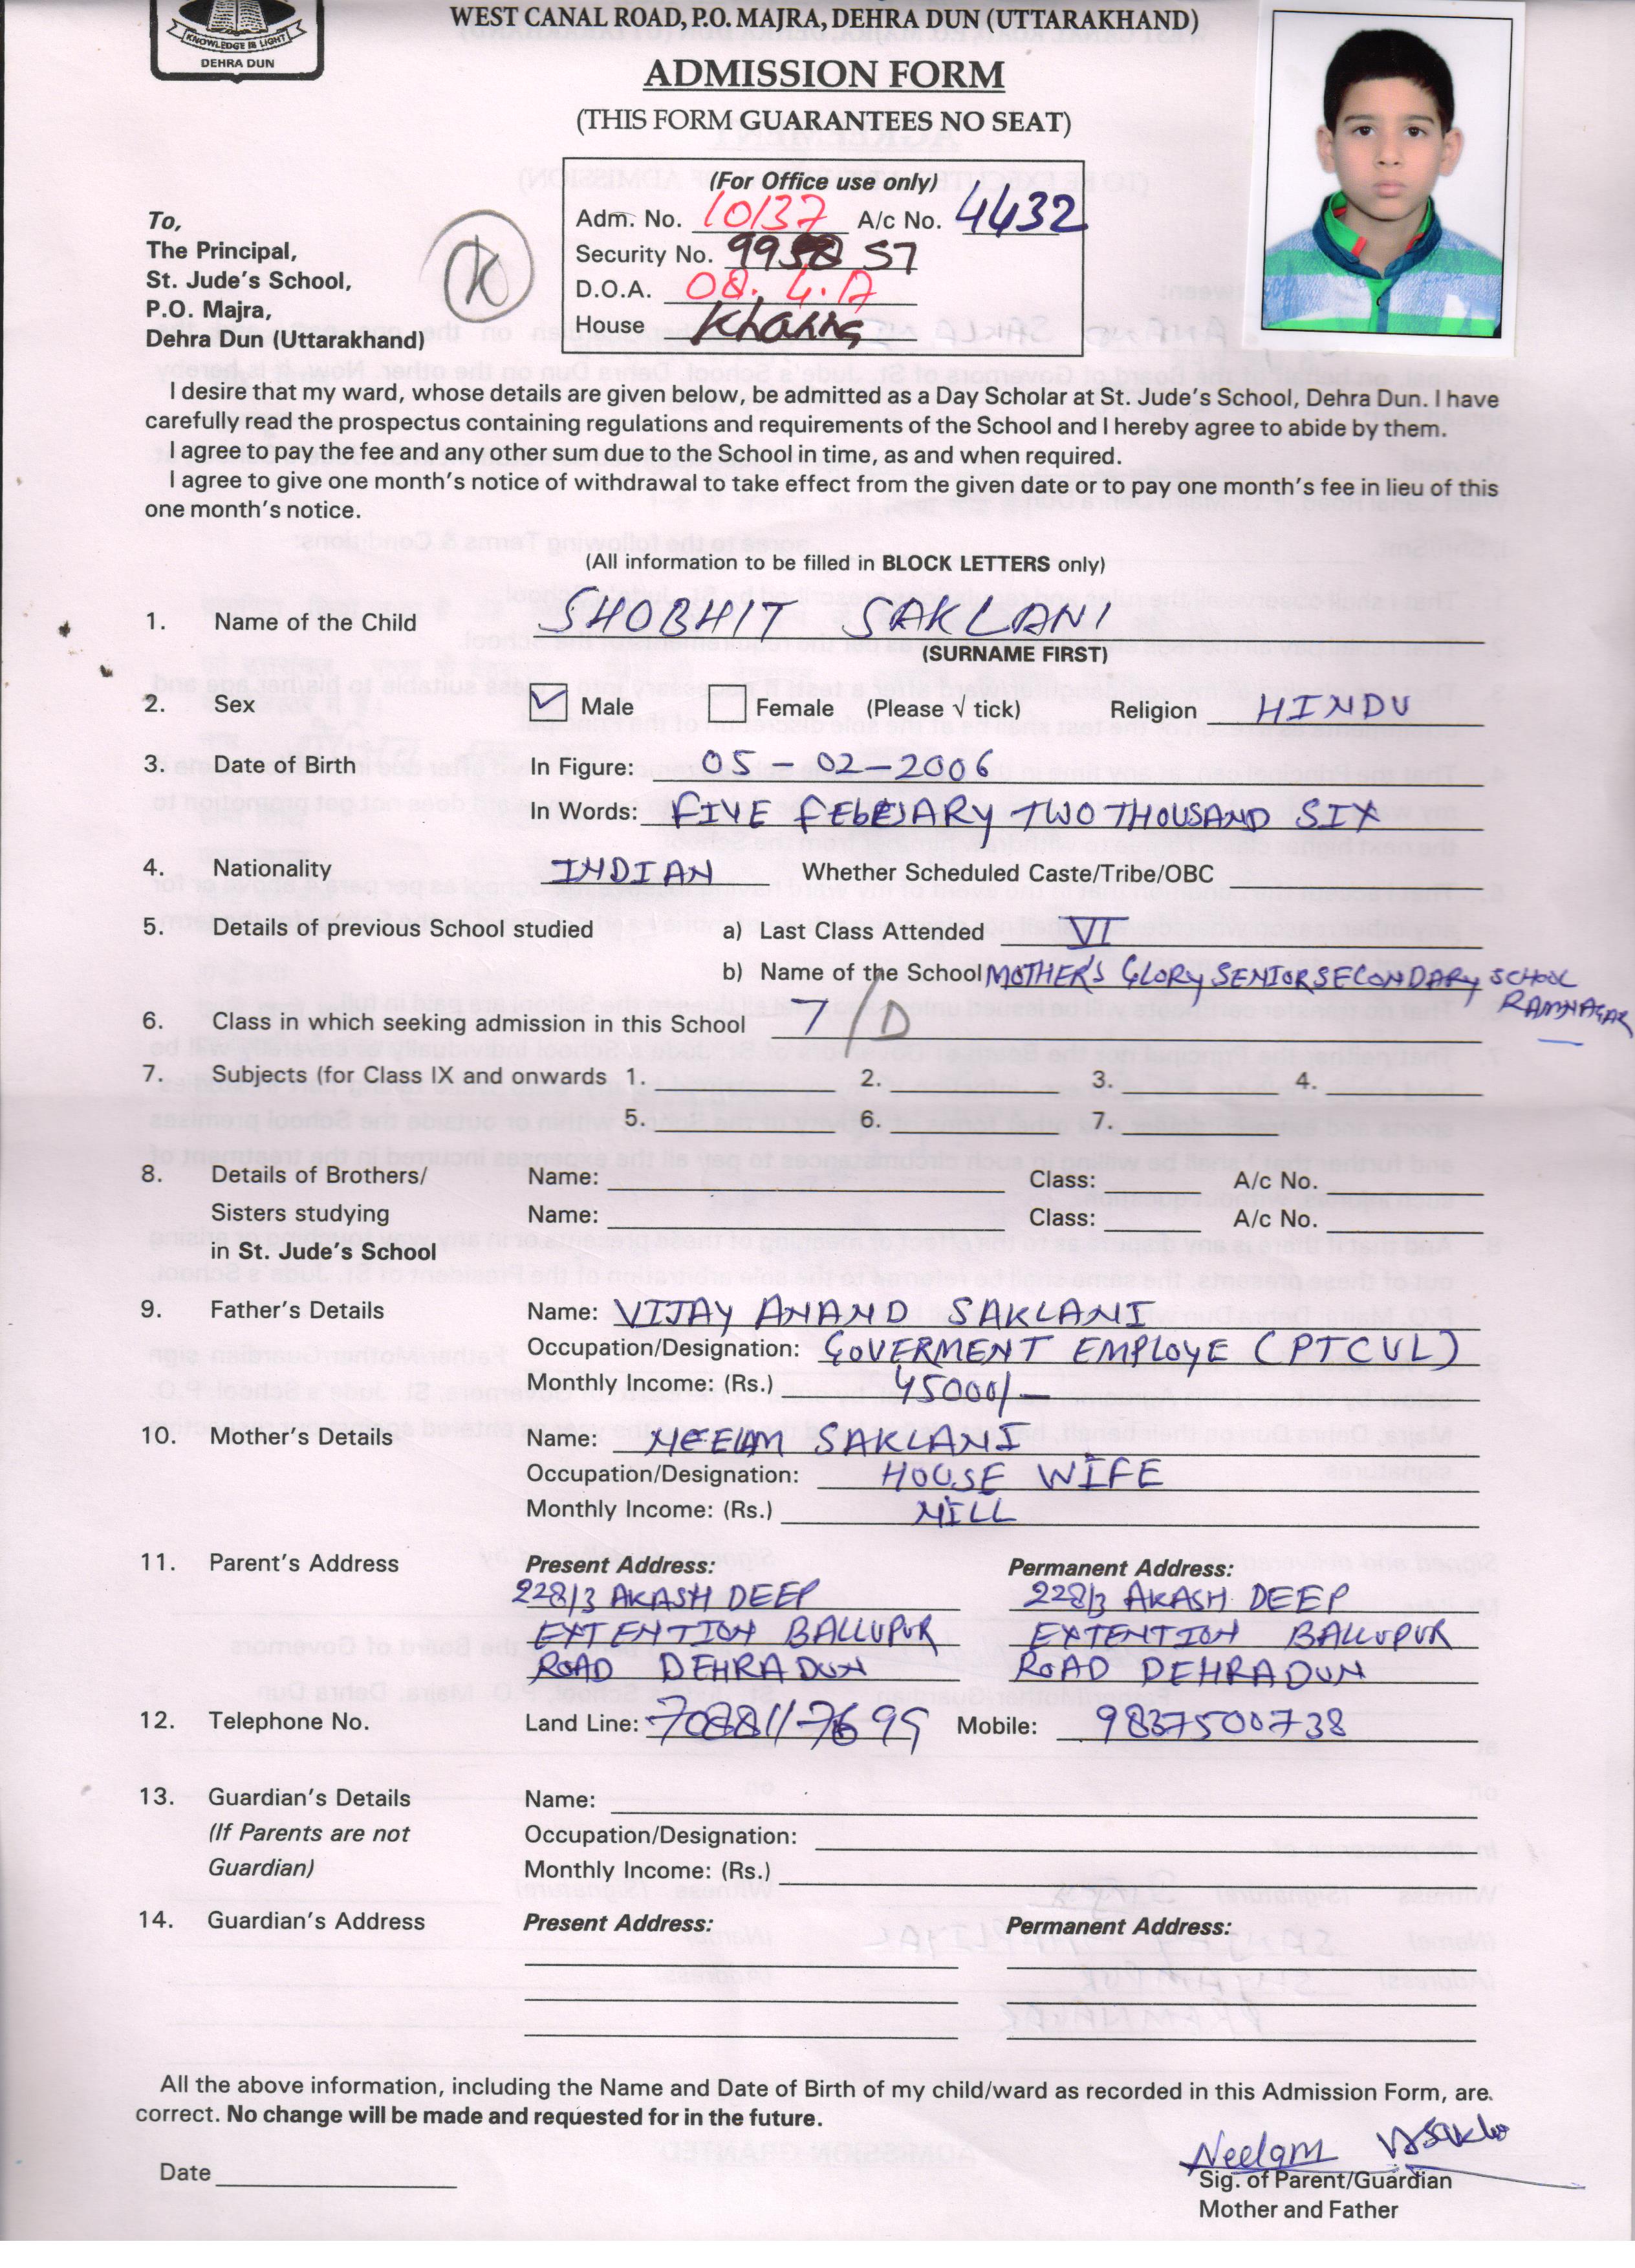 KNOWLEDGE IS LIGHT
DEHRA DUN
WEST CANAL ROAD, P.O. MAJRA, DEHRA DUN (UTTARAKHAND)
ADMISSION FORM
(THIS FORM GUARANTEES NO SEAT)
(For Office use only)
Adm. No. 10137 A/c No. 4432
Security No. 9958 57
D.O.A. 08. 4.
House
K
To,
The Principal,
St. Jude's School,
P.O. Majra,
Dehra Dun (Uttarakhand)
I desire that my ward, whose details are given below, be admitted as a Day Scholar at St. Jude's School, Dehra Dun. I have
carefully read the prospectus containing regulations and requirements of the School and I hereby agree to abide by them.
I agree to pay the fee and any other sum due to the School in time, as and when required.
I agree to give one month's notice of withdrawal to take effect from the given date or to pay one month's fee in lieu of this
one month's notice.
(All information to be filled in BLOCK LETTERS only)
1. Name of the Child SHOBHIT SAKLANI
(SURNAME FIRST)
2. Sex Male Female (Please √ tick) Religion HINDU
3. Date of Birth In Figure: 05-02-2006
In Words: FIVE FEBERARY TWO THOUSAND SIX
4. Nationality INDIAN Whether Scheduled Caste/Tribe/OBC
5. Details of previous School studied a) Last Class Attended VI
b) Name of the School MOTHER'S GLORY SENIOR SECONDARY SCHOOL
RAMNAGAR
6. Class in which seeking admission in this School 7/D
7. Subjects (for Class IX and onwards 1. 2. 3. 4.
5. 6. 7.
8. Details of Brothers/ Name: Class: A/c No.
Sisters studying Name: Class: A/c No.
in St. Jude's School
9. Father's Details Name: VIJAY ANAND SAKLANI
Occupation/Designation: GOVERMENT EMPLOYE (PTCUL)
Monthly Income: (Rs.) 45000/-
10. Mother's Details Name: NEELAM SAKLANI
Occupation/Designation: HOUSE WIFE
Monthly Income: (Rs.) NILL
11. Parent's Address Present Address: Permanent Address:
228/3 AKASH DEEP 228/3 AKASH DEEP
EXTENTION BALLUPUR EXTENTION BALLUPUR
ROAD DEHRADUN ROAD DEHRADUN
12. Telephone No. Land Line: 7088117699 Mobile: 9837500738
13. Guardian's Details Name:
(If Parents are not Occupation/Designation:
Guardian) Monthly Income: (Rs.)
14. Guardian's Address Present Address: Permanent Address:
All the above information, including the Name and Date of Birth of my child/ward as recorded in this Admission Form, are
correct. No change will be made and requested for in the future.
Neelam
Date Sig. of Parent/Guardian
Mother and Father